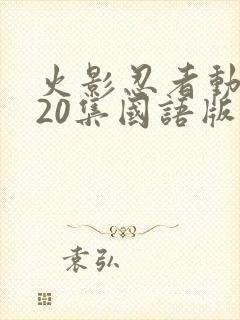 火影忍者動
20集國語版
袁弘